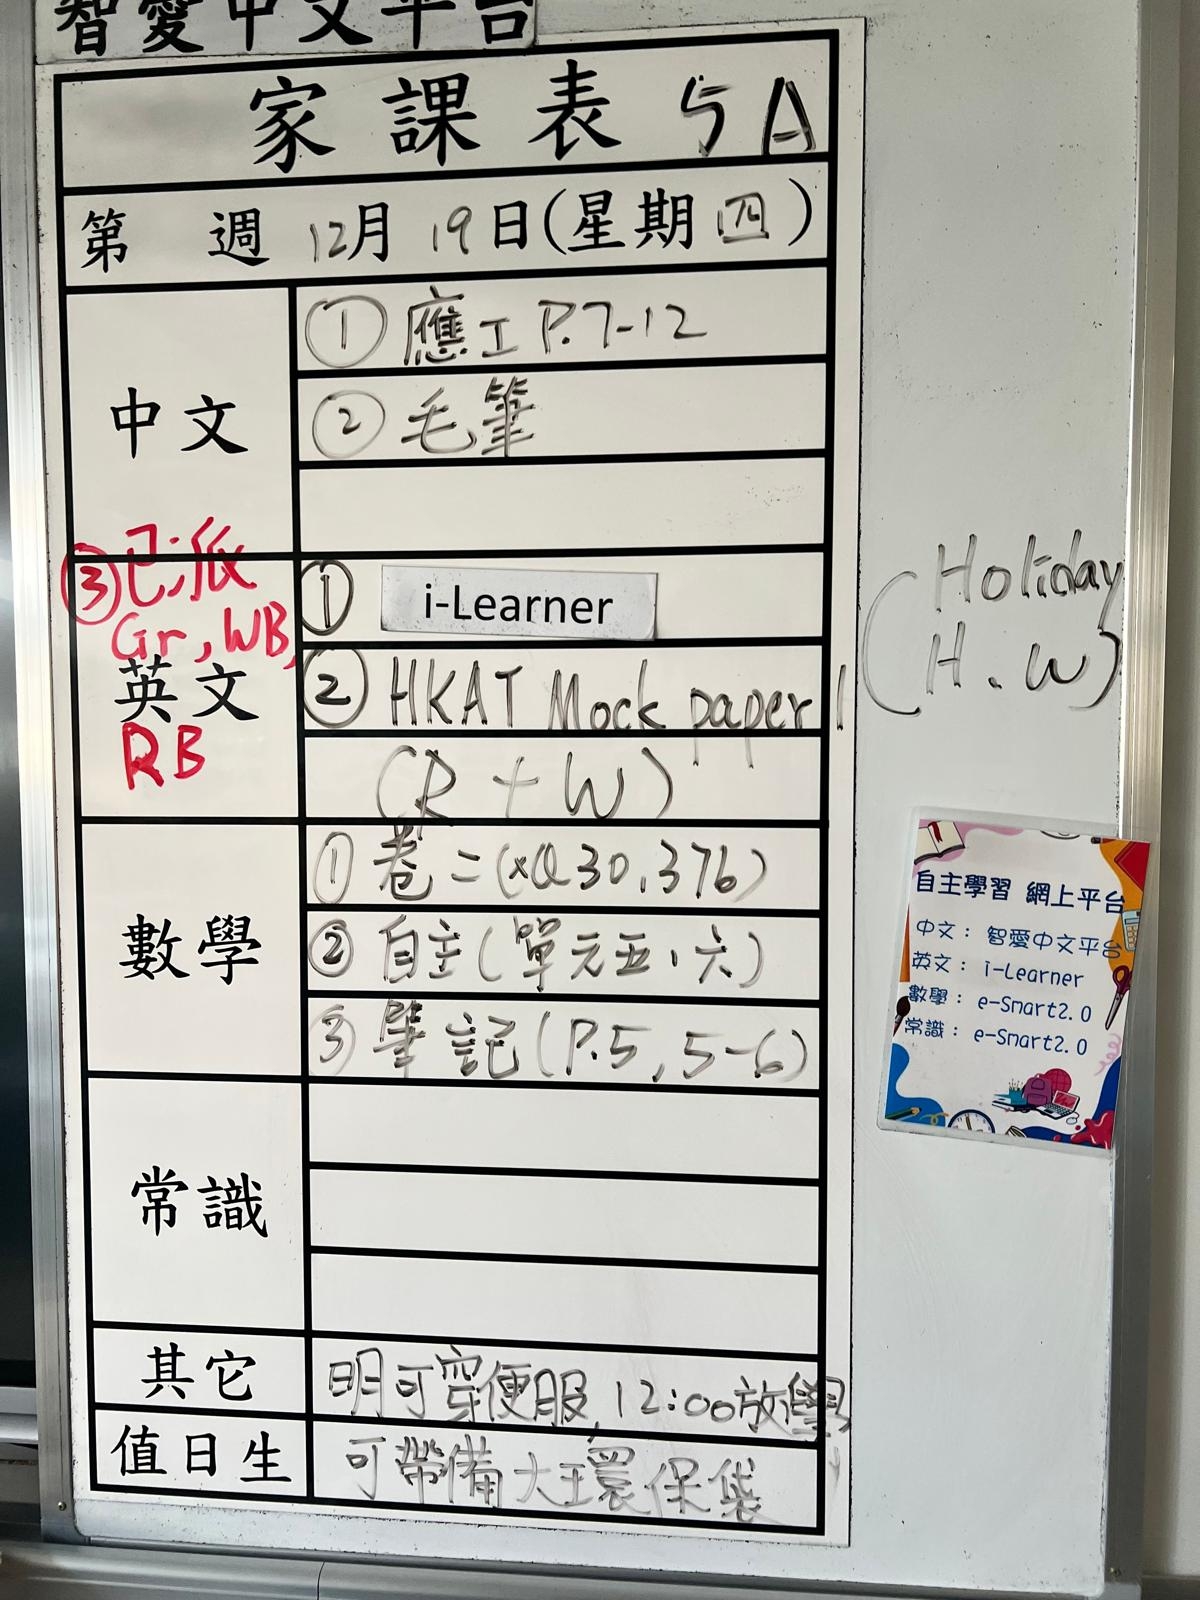 智愛中文平台
家課表 5A
第 週 12月 19日(星期四)
中文
① 應工 P.7-12
② 毛筆
③已派
Gr, WB,
英文
RB
① i-Learner
② HKAT Mock paper 1
(R + W)
(Holiday
H.W)
數學
① 卷二(xQ30,376)
② 自主(單元五、六)
③ 筆記(P.5,5-6)
常識
其它
明可穿便服,12:00放學
值日生
可帶備大環保袋
自主學習 網上平台
中文: 智愛中文平台
英文: i-Learner
數學: e-Smart2.0
常識: e-Smart2.0